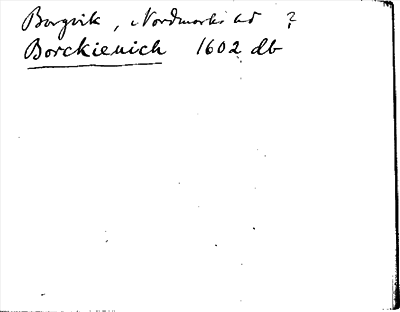 Borgvik, Nordmarks hd ?
Borckieuich 1602 db